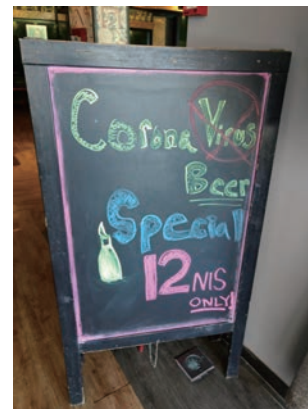 Corona Virus
Beer
Special
12 NIS
ONLY!